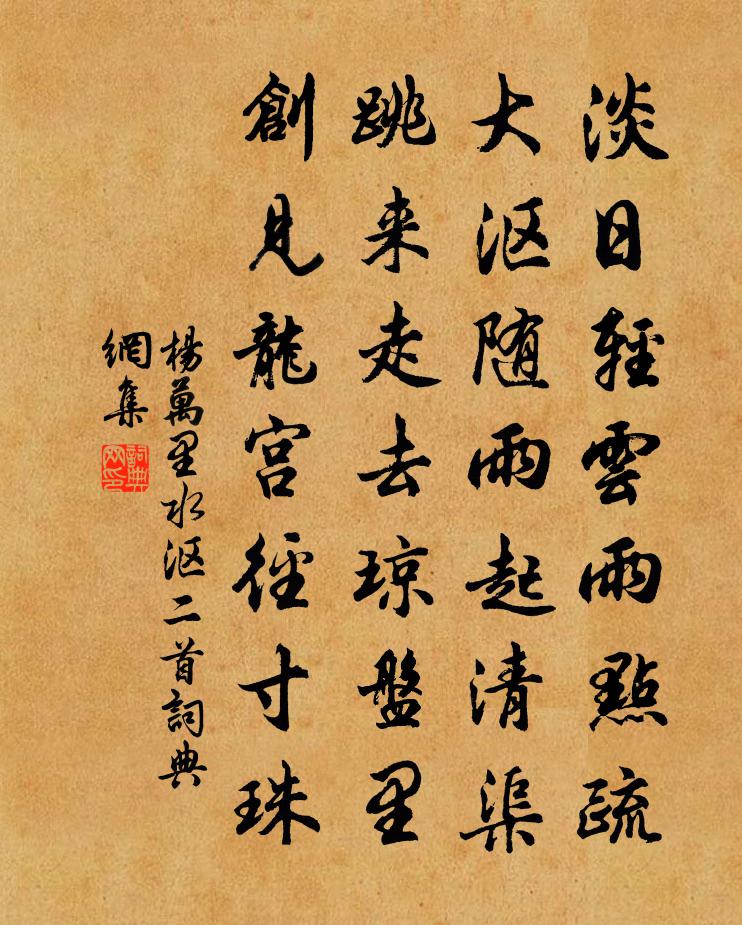 淡日輕雲雨點疏
大沤随雨起清渠
跳来走去琼盤里
創見龍宫徑寸珠
楊萬里水沤二首詞典
網集
詞典
网印